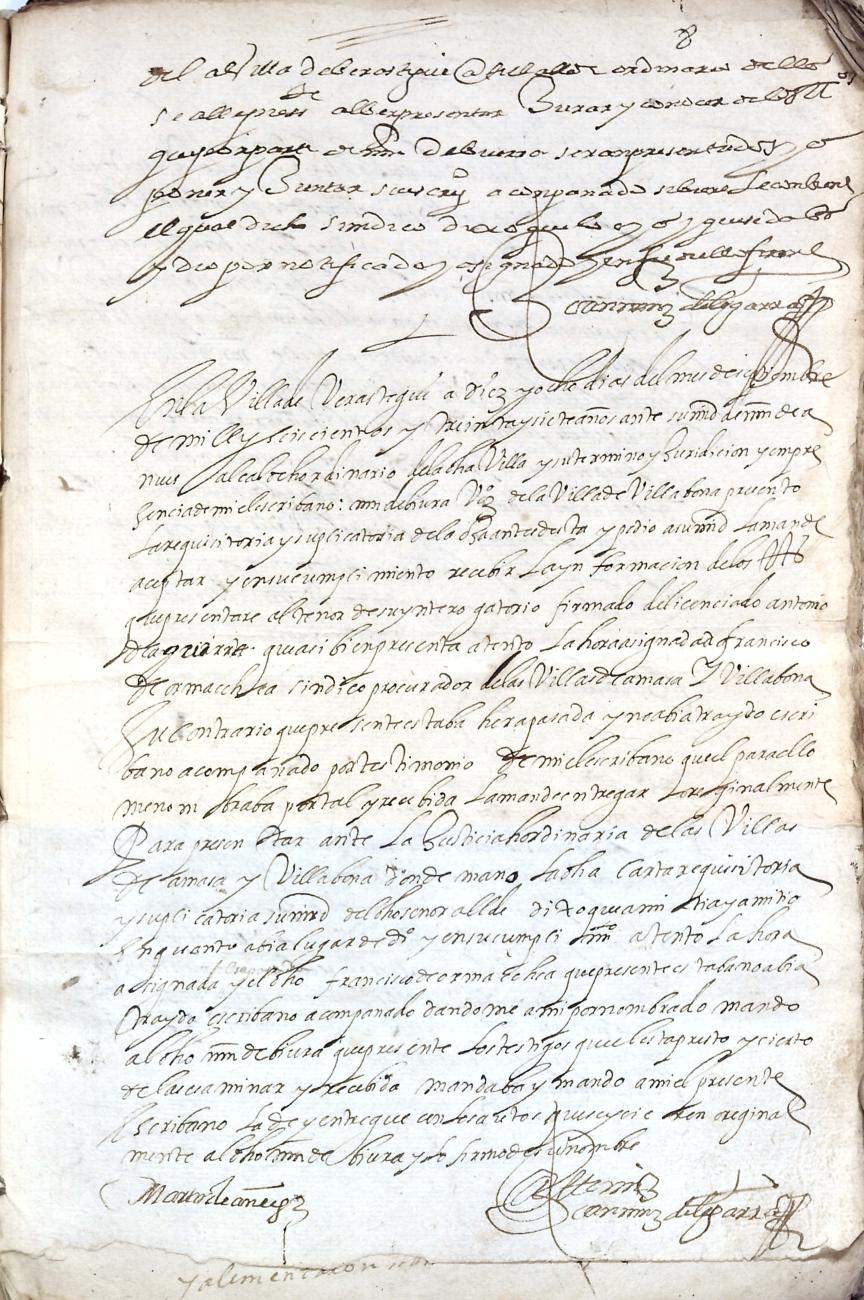 8
del a Villa de berastegui alcalde ordinario de ella
se alle presente al ber presentar Jurar y conocer de los tos
que por parte de mín de biurra seran presentados y
poner y Juntar su escro aconpanado
el qual dicho sindico dixo que lo
y dio por notificado y en fee de ello firme
de ligarra
En la Villa de Verastegui a diez y ocho dias del mes de septiembre
de mill y seiscientos y treinta y siete años ante su md de mín de a
nues alcalde hordinario de la dha Villa y su termino y Juridicion y en pre
sencia de mi el escribano: mín de biura Vzo de la Villa de Villabona presento
la requisitoria y suplicatoria de la oja antes desta y pidio a su md la mande
aceptar y en su cumplimiento recebir la ynformacion de los tos
que presentare al tenor de su yntero gatorio firmado del licenciado antonio
de aguirre que asi bien presenta atento la hora asignada a francisco
de ormaechea sindico procurador de las Villas de amasa y Villabona
su contrario que presente estaba hera pasada y no abia traydo escri
bano acompanado por testimonio de mi el escribano que el para ello
me nombraba por tal y recebida la mande entregar loreginalmente
Para presentar ante la Justicia hordinaria de las Villas
de amasa y Villabona donde mano la dha carta requisitoria
y suplicatoria su md del dho señor allde dixo que admitia y admitio
en quanto abia lugar de dro y en su cumplimto atento la hora
asignada y el dho francisco de ormaechea que presente estaba no abia
traydo escribano acompanado dandome a mi por nombrado mando
al dho mín de biura que presente los testigos que el esta presto y cierto
de las esaminar y recebida mandaba y mando a mi el presente
escribano la de y entregue con los autos que se ycieren oreginal
mente al dho mín de biura y lo firmo de su nombre
Martin de anuez
Ante mi
de ligarra